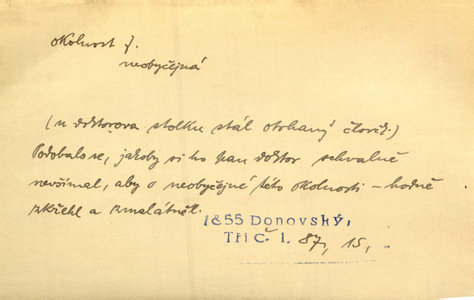 okolnost f.
neobyčejná
(u doktorova stolku stál otrhaný člověk.)
Podobalo se, jakoby si ho pan doktor schválně
nevšímal, aby o neobyčejné této okolnosti – hodně
zkřehl a zmalátněl.
1855 Donovský,
Tři č. I. 87, 15,